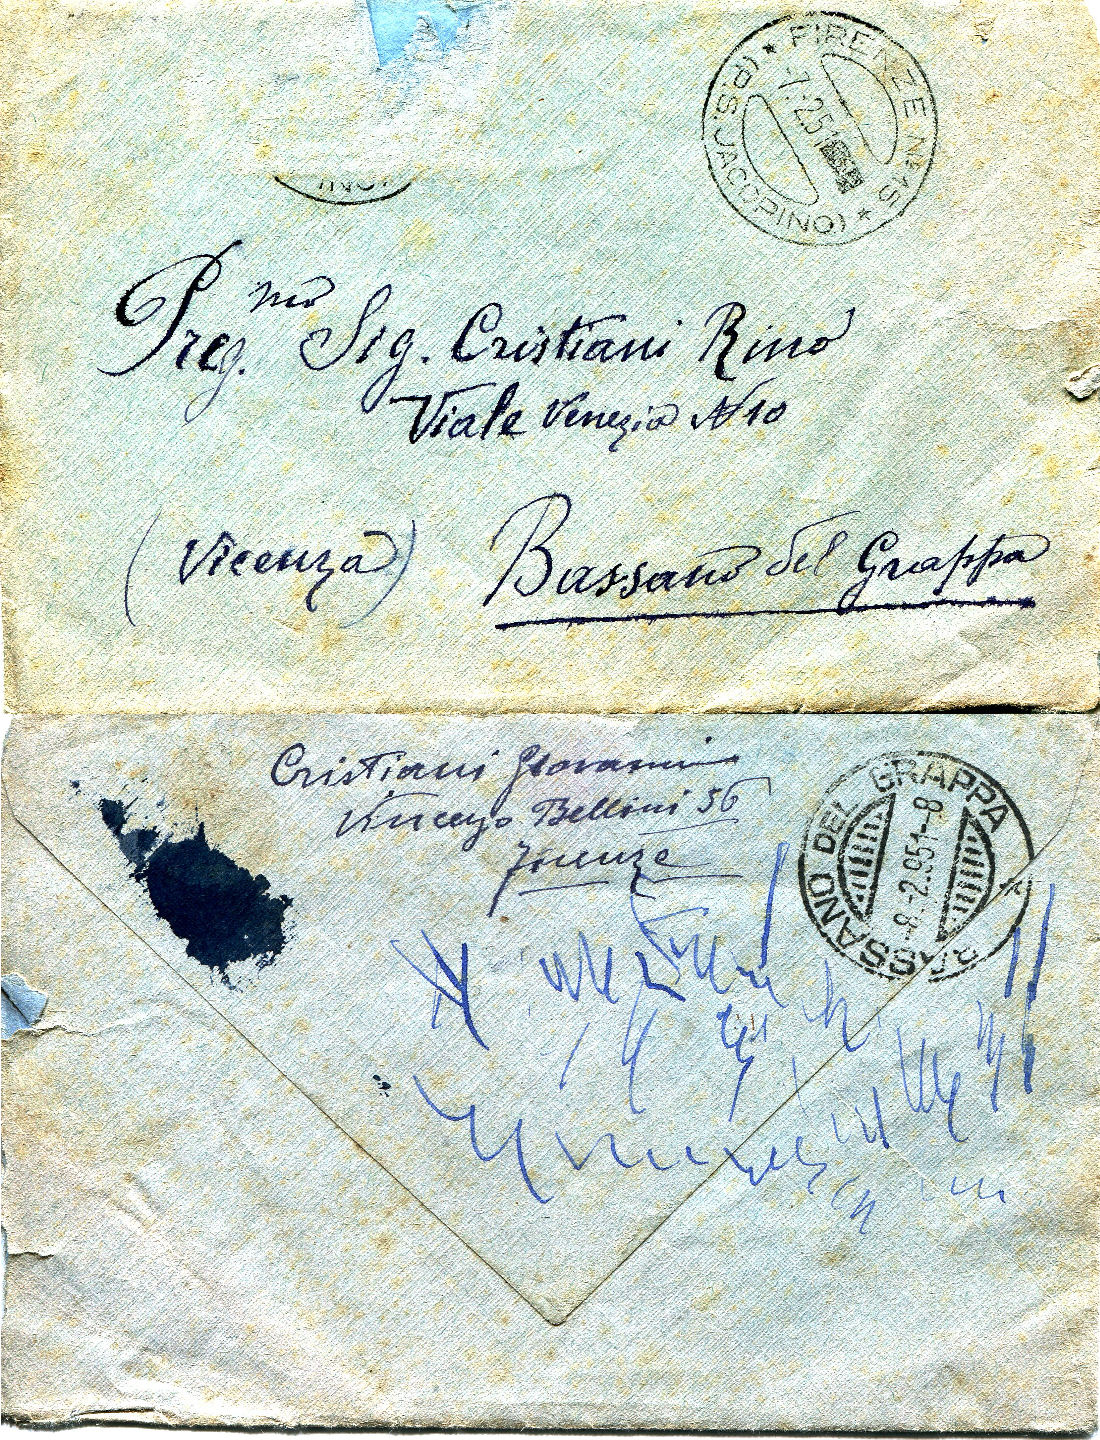 FIRENZE N° 15 (P.S. JACOPINO)
7.2.51
Preg.mo Sig. Cristiani Rino
Viale Venezia N 10
(Vicenza) Bassano del Grappa
Cristiani Giovanni
Vincenzo Bellini 56
Firenze
BASSANO DEL GRAPPA
8.-2.951-8